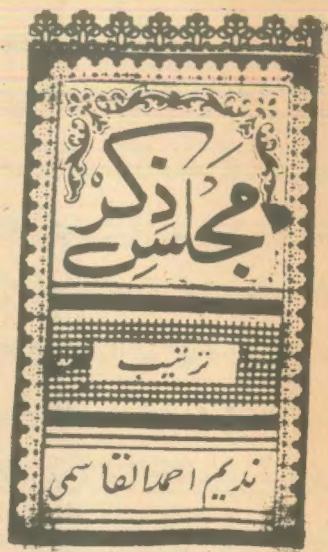 مجلسِ ذکر
ترتیب
ندیم احمد القاسمی